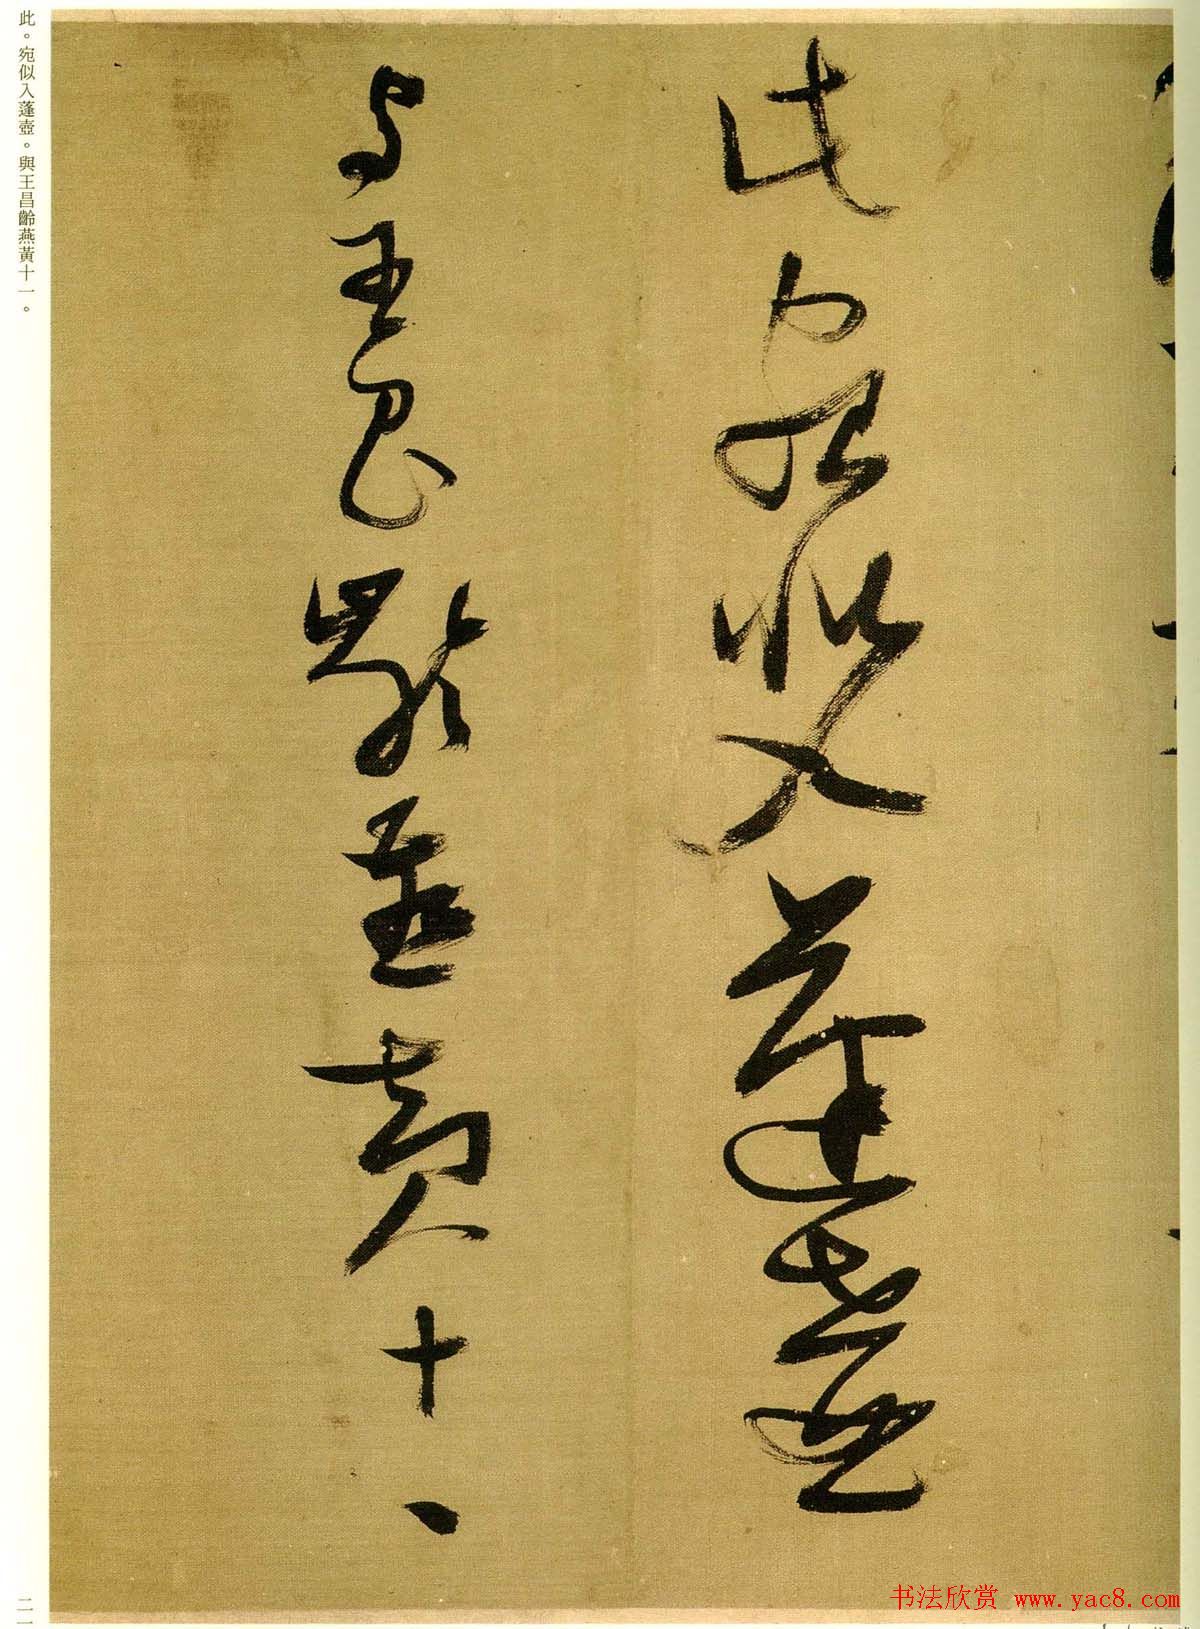 此宛似入蓬壺
与王昌齡燕黄十一
此。宛似入蓬壺。與王昌齡燕黃十一。
二一
书法欣赏 www.yac8.com